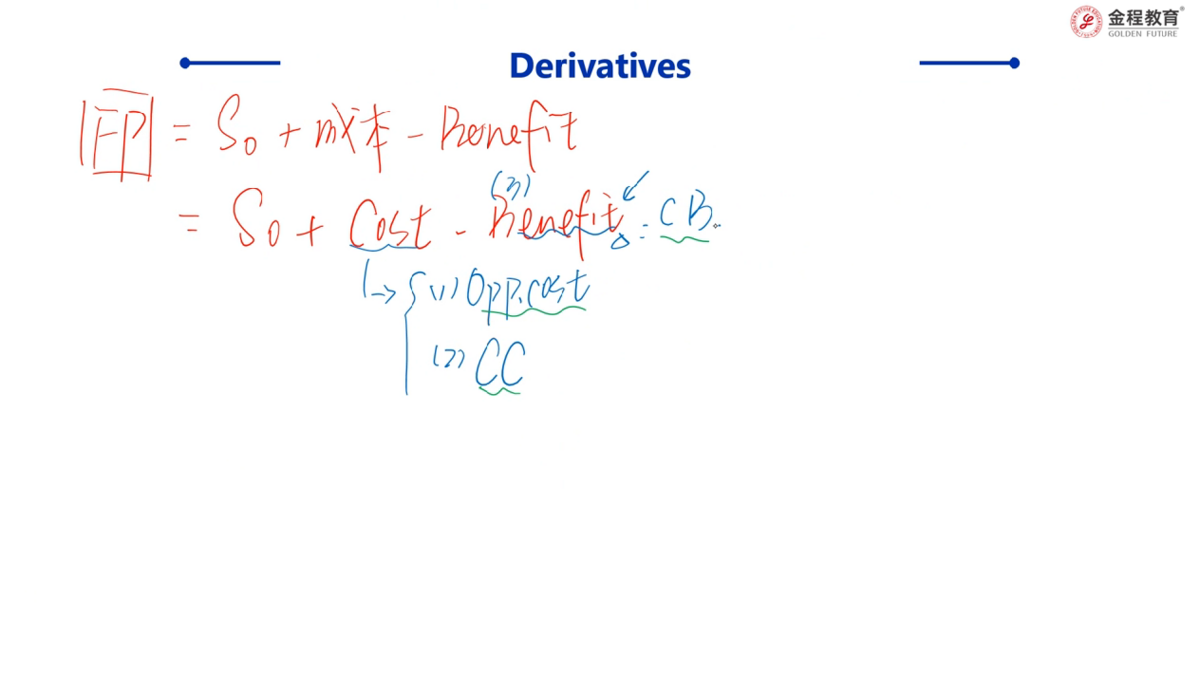 金程教育
GOLDEN FUTURE
Derivatives
FP = S₀ + 成本 - Benefit
(3)
= S₀ + Cost - Benefit : CB
(1) Opp. cost
(2) CC